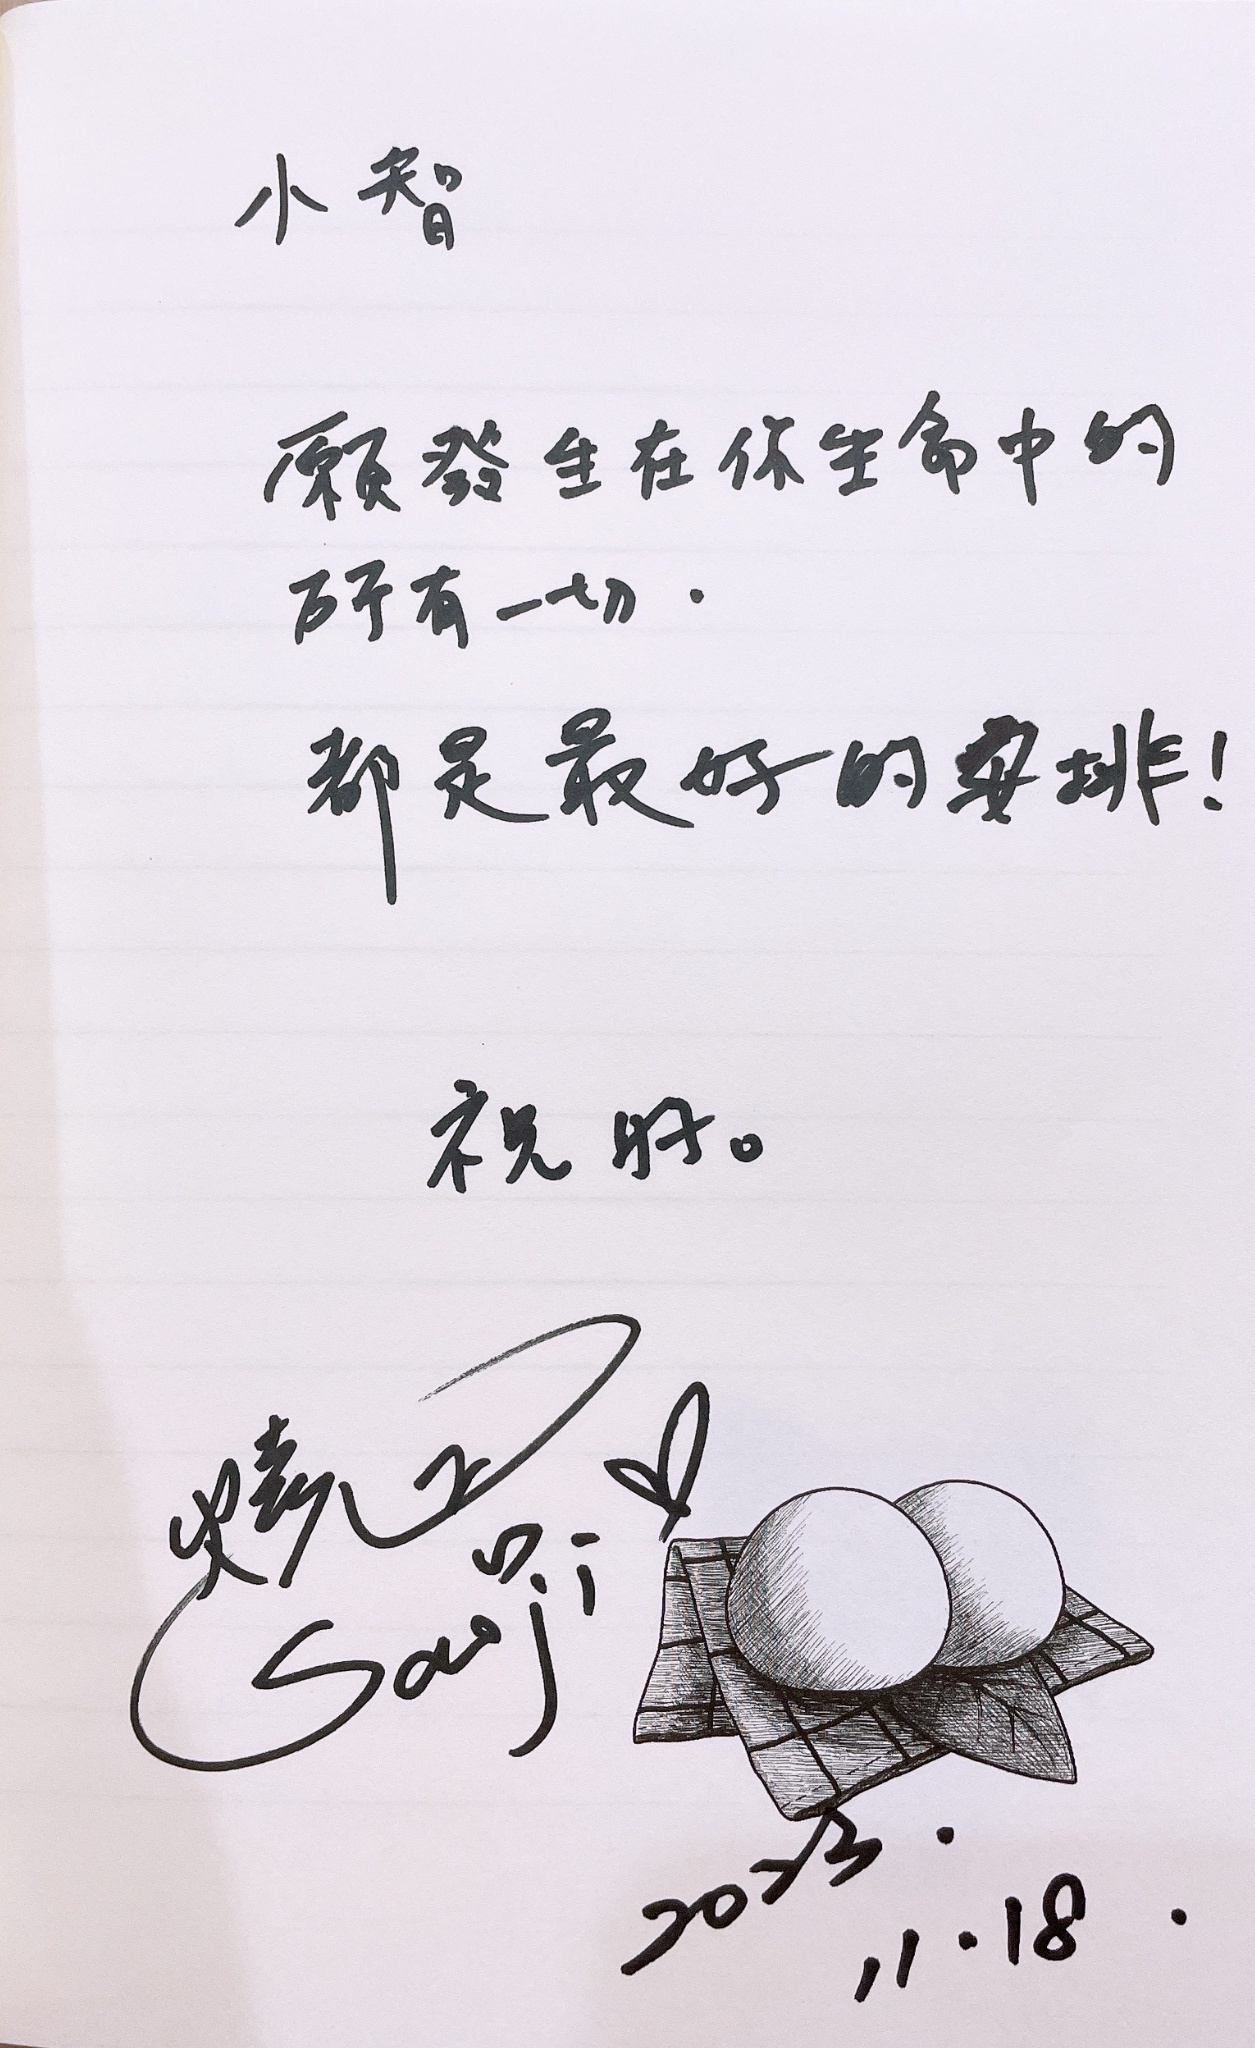 小智
願發生在你生命中的
所有一切.
都是最好的安排!
祝好。
Sanji
2023.
11.18.